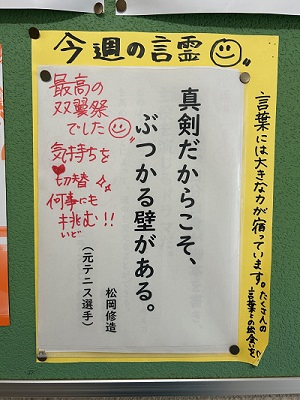 今週の言霊
真剣だからこそ、
ぶつかる壁がある。
松岡修造
（元テニス選手）
最高の
双翼祭
でした
気持ちを
切替え
何事にも
挑む!!
いど
言葉には大きな力が宿っています。たくさんの
言葉との出会いを